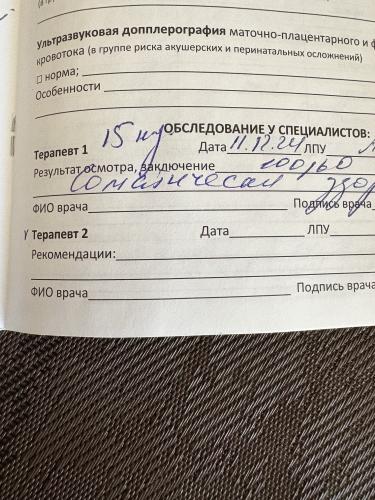 Ультразвуковая допплерография маточно-плацентарного и ф
кровотока (в группе риска акушерских и перинатальных осложнений)
□ норма;
Особенности
ОБСЛЕДОВАНИЕ У СПЕЦИАЛИСТОВ:
Терапевт 1 15 Дата 11.12.24 ЛПУ
Результат осмотра, заключение
соматически здор
ФИО врача Подпись врача
Терапевт 2 Дата ЛПУ
Рекомендации:
ФИО врача Подпись врача